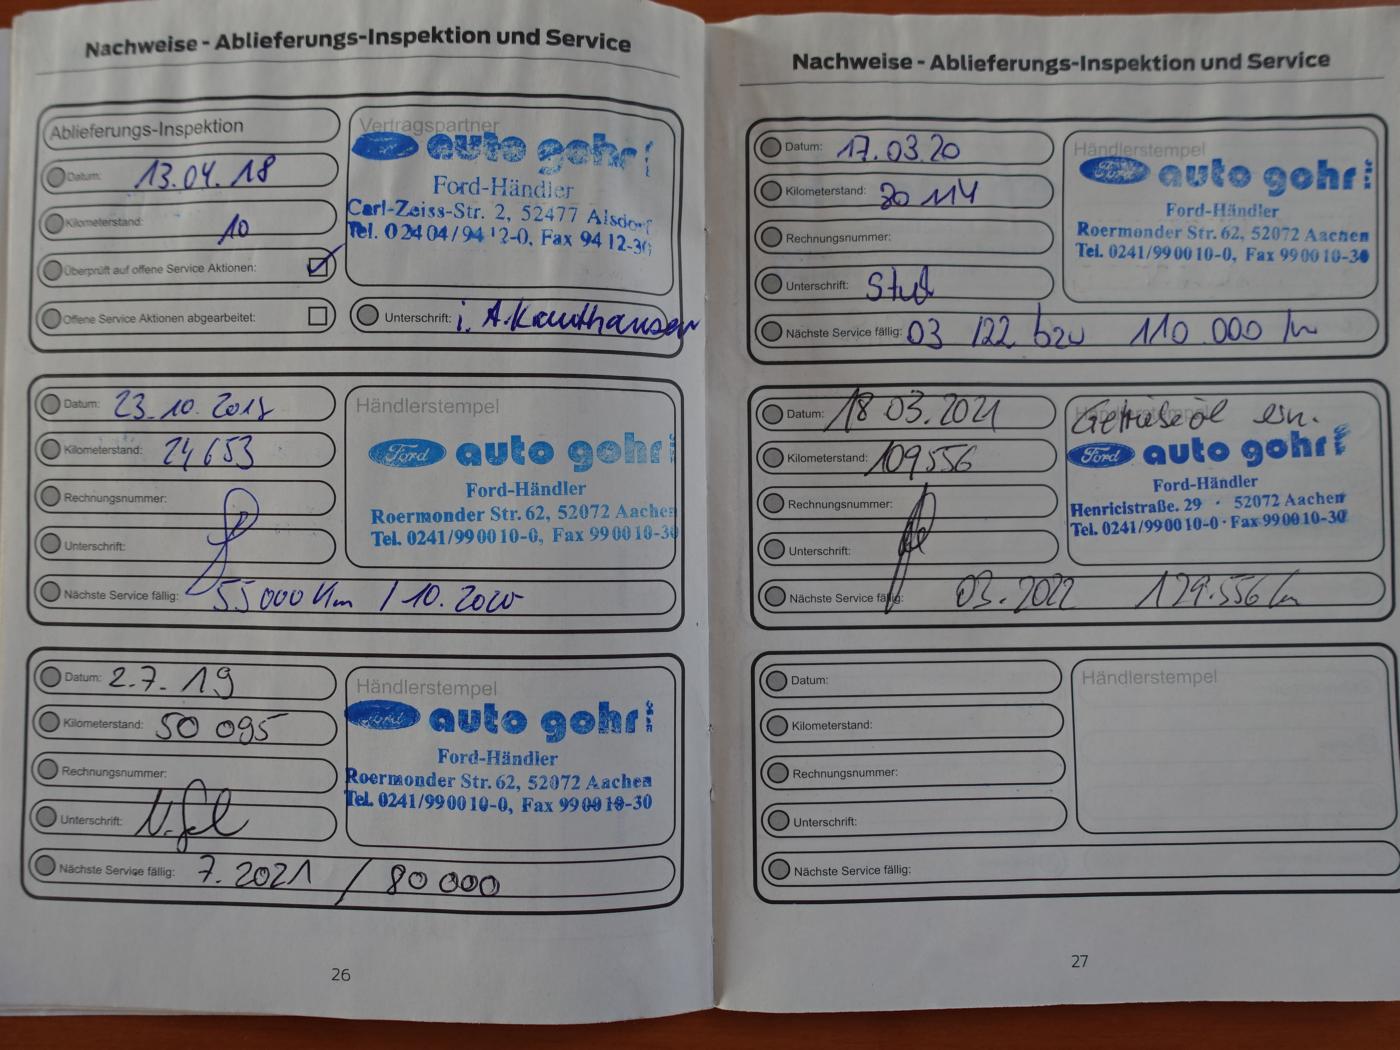 Nachweise - Ablieferungs-Inspektion und Service
Ablieferungs-Inspektion
Datum: 13.04.18
Kilometerstand: 10
Überprüft auf offene Service Aktionen:
Offene Service Aktionen abgearbeitet:
Vertragspartner
Ford auto gohr
Ford-Händler
Carl-Zeiss-Str. 2, 52477 Alsdorf
Tel. 02404/9412-0, Fax 9412-30
Unterschrift: i. A. Kauthausen
Datum: 23.10.2018
Kilometerstand: 24653
Rechnungsnummer:
Unterschrift:
Nächste Service fällig: 55000 Km / 10.2020
Händlerstempel
Ford auto gohr
Ford-Händler
Roermonder Str. 62, 52072 Aachen
Tel. 0241/990010-0, Fax 990010-30
Datum: 2.7.19
Kilometerstand: 50 095
Rechnungsnummer:
Unterschrift:
Nächste Service fällig: 7.2021 / 80 000
Händlerstempel
Ford auto gohr
Ford-Händler
Roermonder Str. 62, 52072 Aachen
Tel. 0241/990010-0, Fax 990010-30
26
Nachweise - Ablieferungs-Inspektion und Service
Datum: 17.03.20
Kilometerstand: 80 114
Rechnungsnummer:
Unterschrift:
Nächste Service fällig: 03/22 bzw 110.000 km
Händlerstempel
Ford auto gohr
Ford-Händler
Roermonder Str. 62, 52072 Aachen
Tel. 0241/990010-0, Fax 990010-30
Datum: 18.03.2021
Kilometerstand: 109556
Rechnungsnummer:
Unterschrift:
Nächste Service fällig: 03.2022 129.556 km
Händlerstempel
Getriebeöl ern.
Ford auto gohr
Ford-Händler
Henricistraße. 29 · 52072 Aachen
Tel. 0241/990010-0 · Fax 990010-30
Datum:
Kilometerstand:
Rechnungsnummer:
Unterschrift:
Nächste Service fällig:
Händlerstempel
27